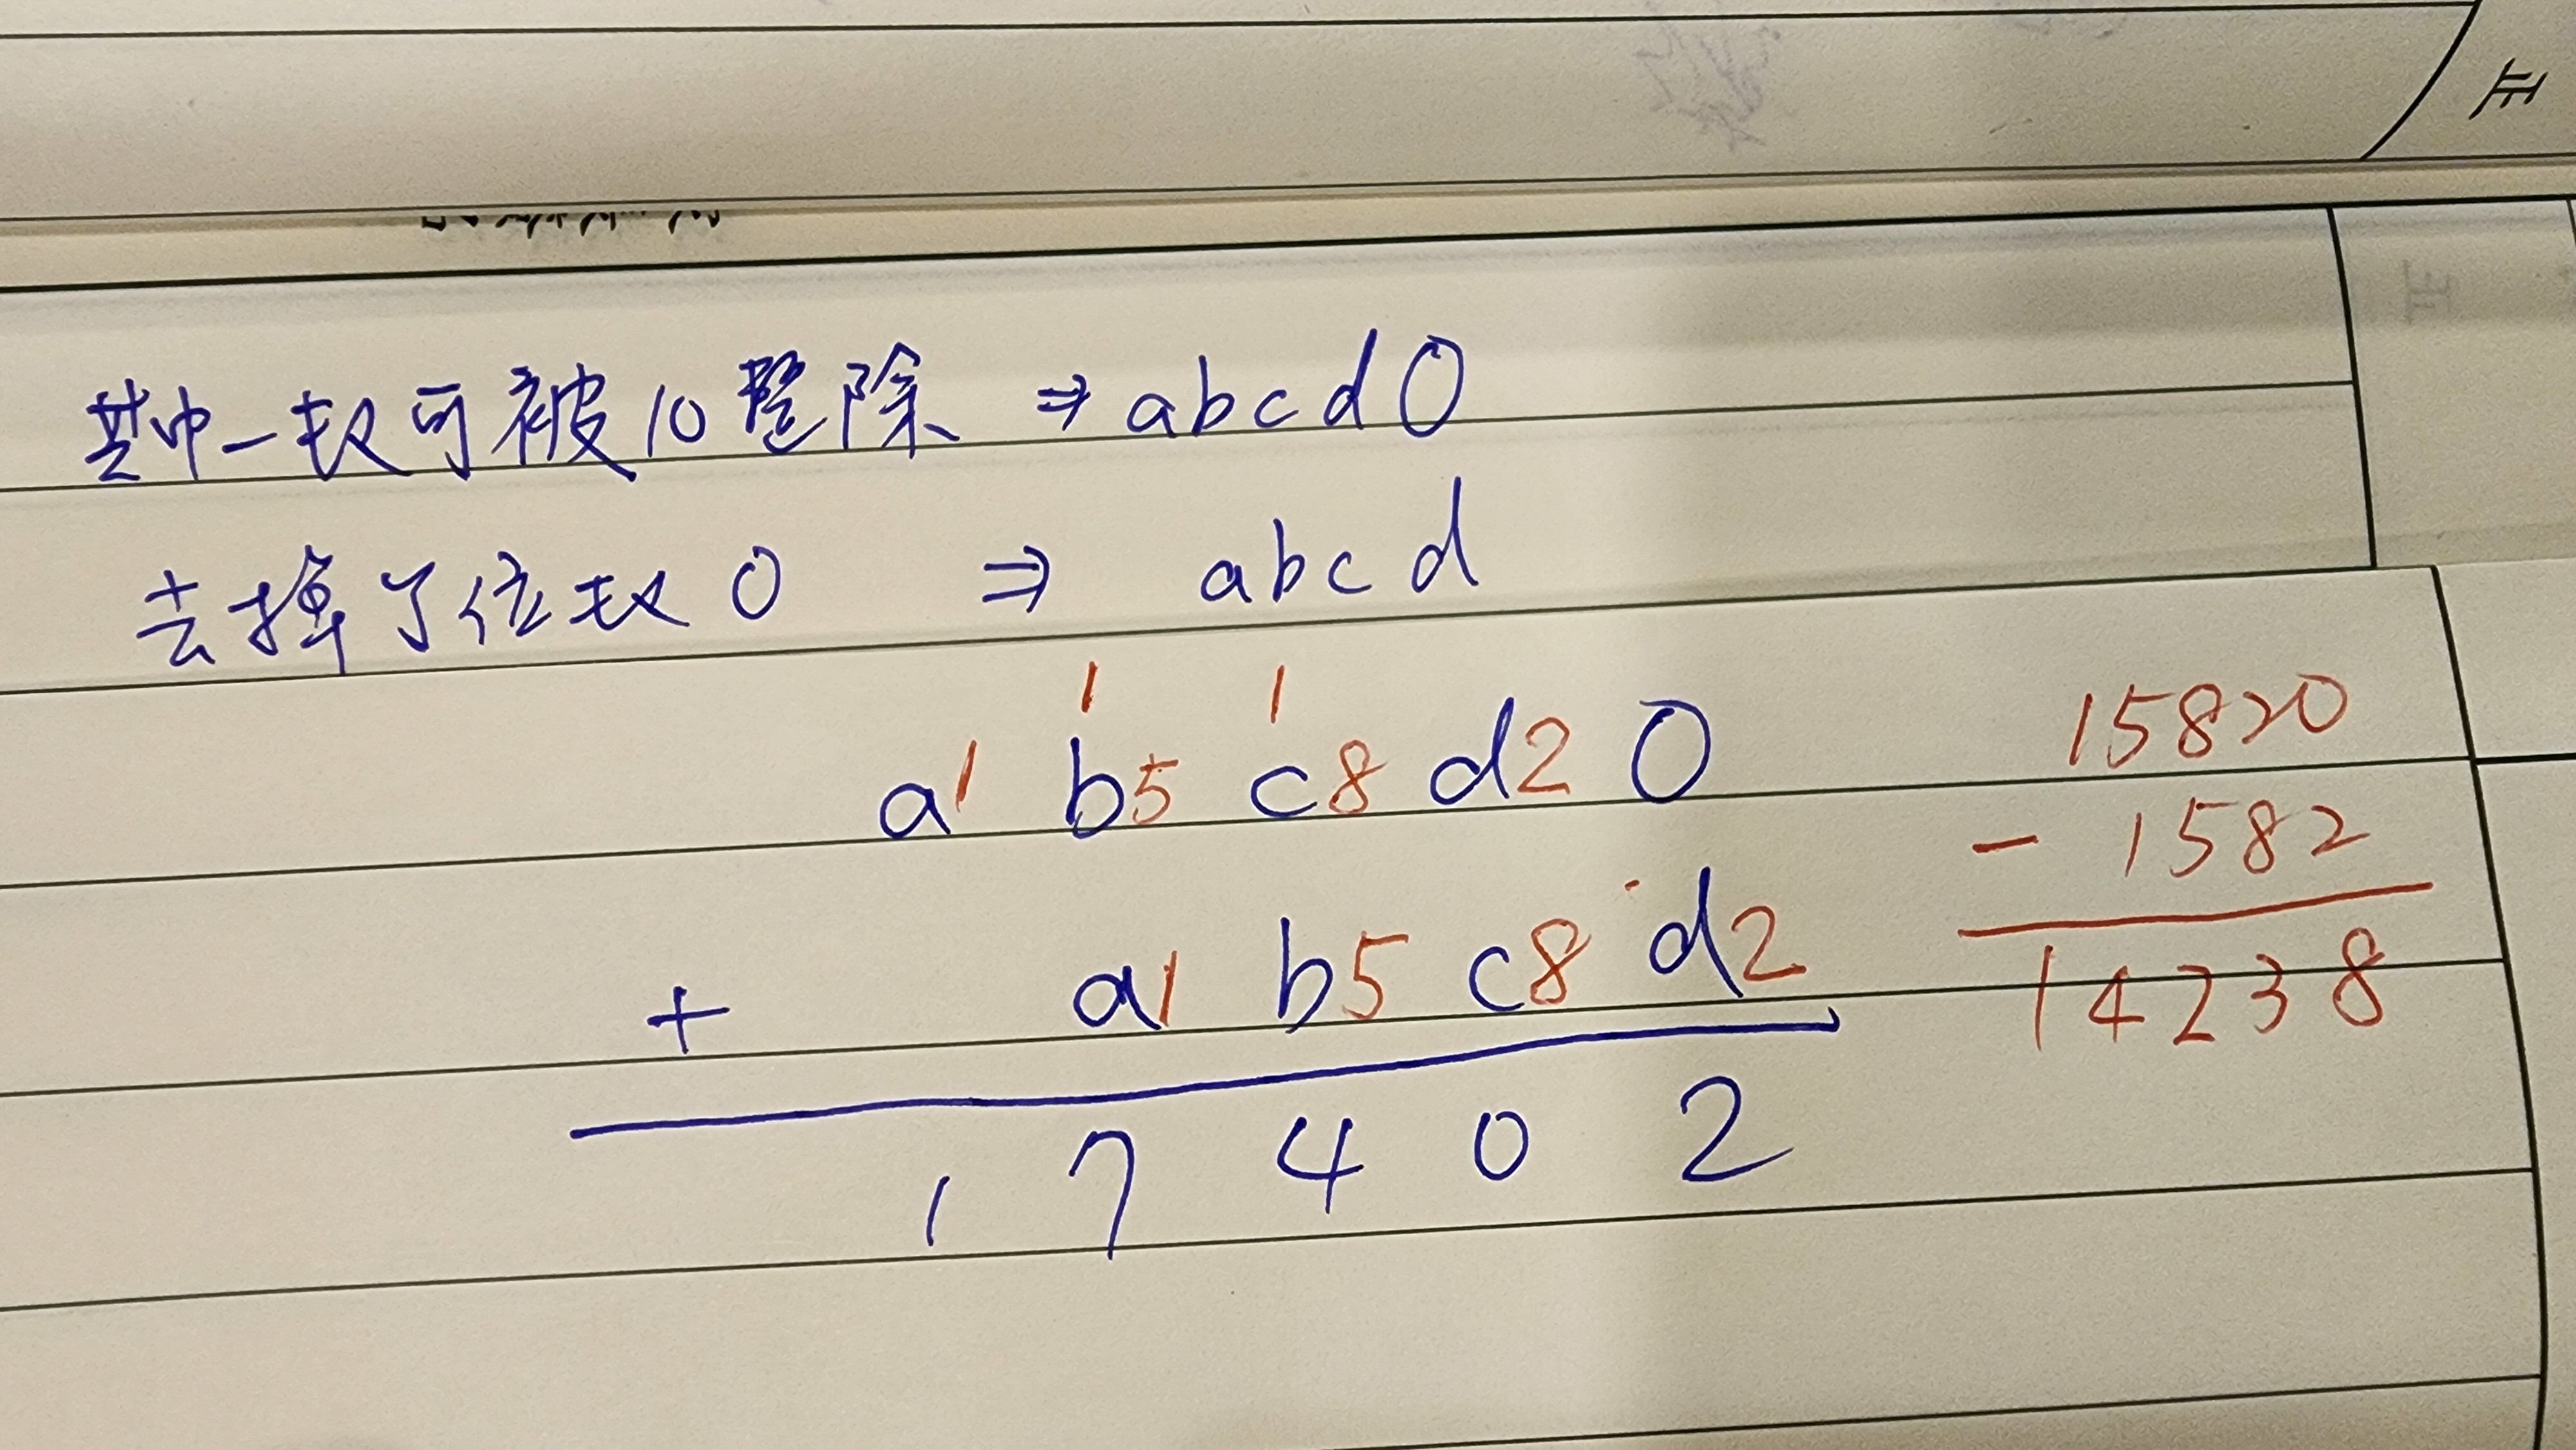 其中一数可被10整除 ⇒ abcd0
去掉了位数0 ⇒ abcd
1 1
a1 b5 c8 d2 0
+ a1 b5 c8 d2
1 7 4 0 2
15820
- 1582
14238